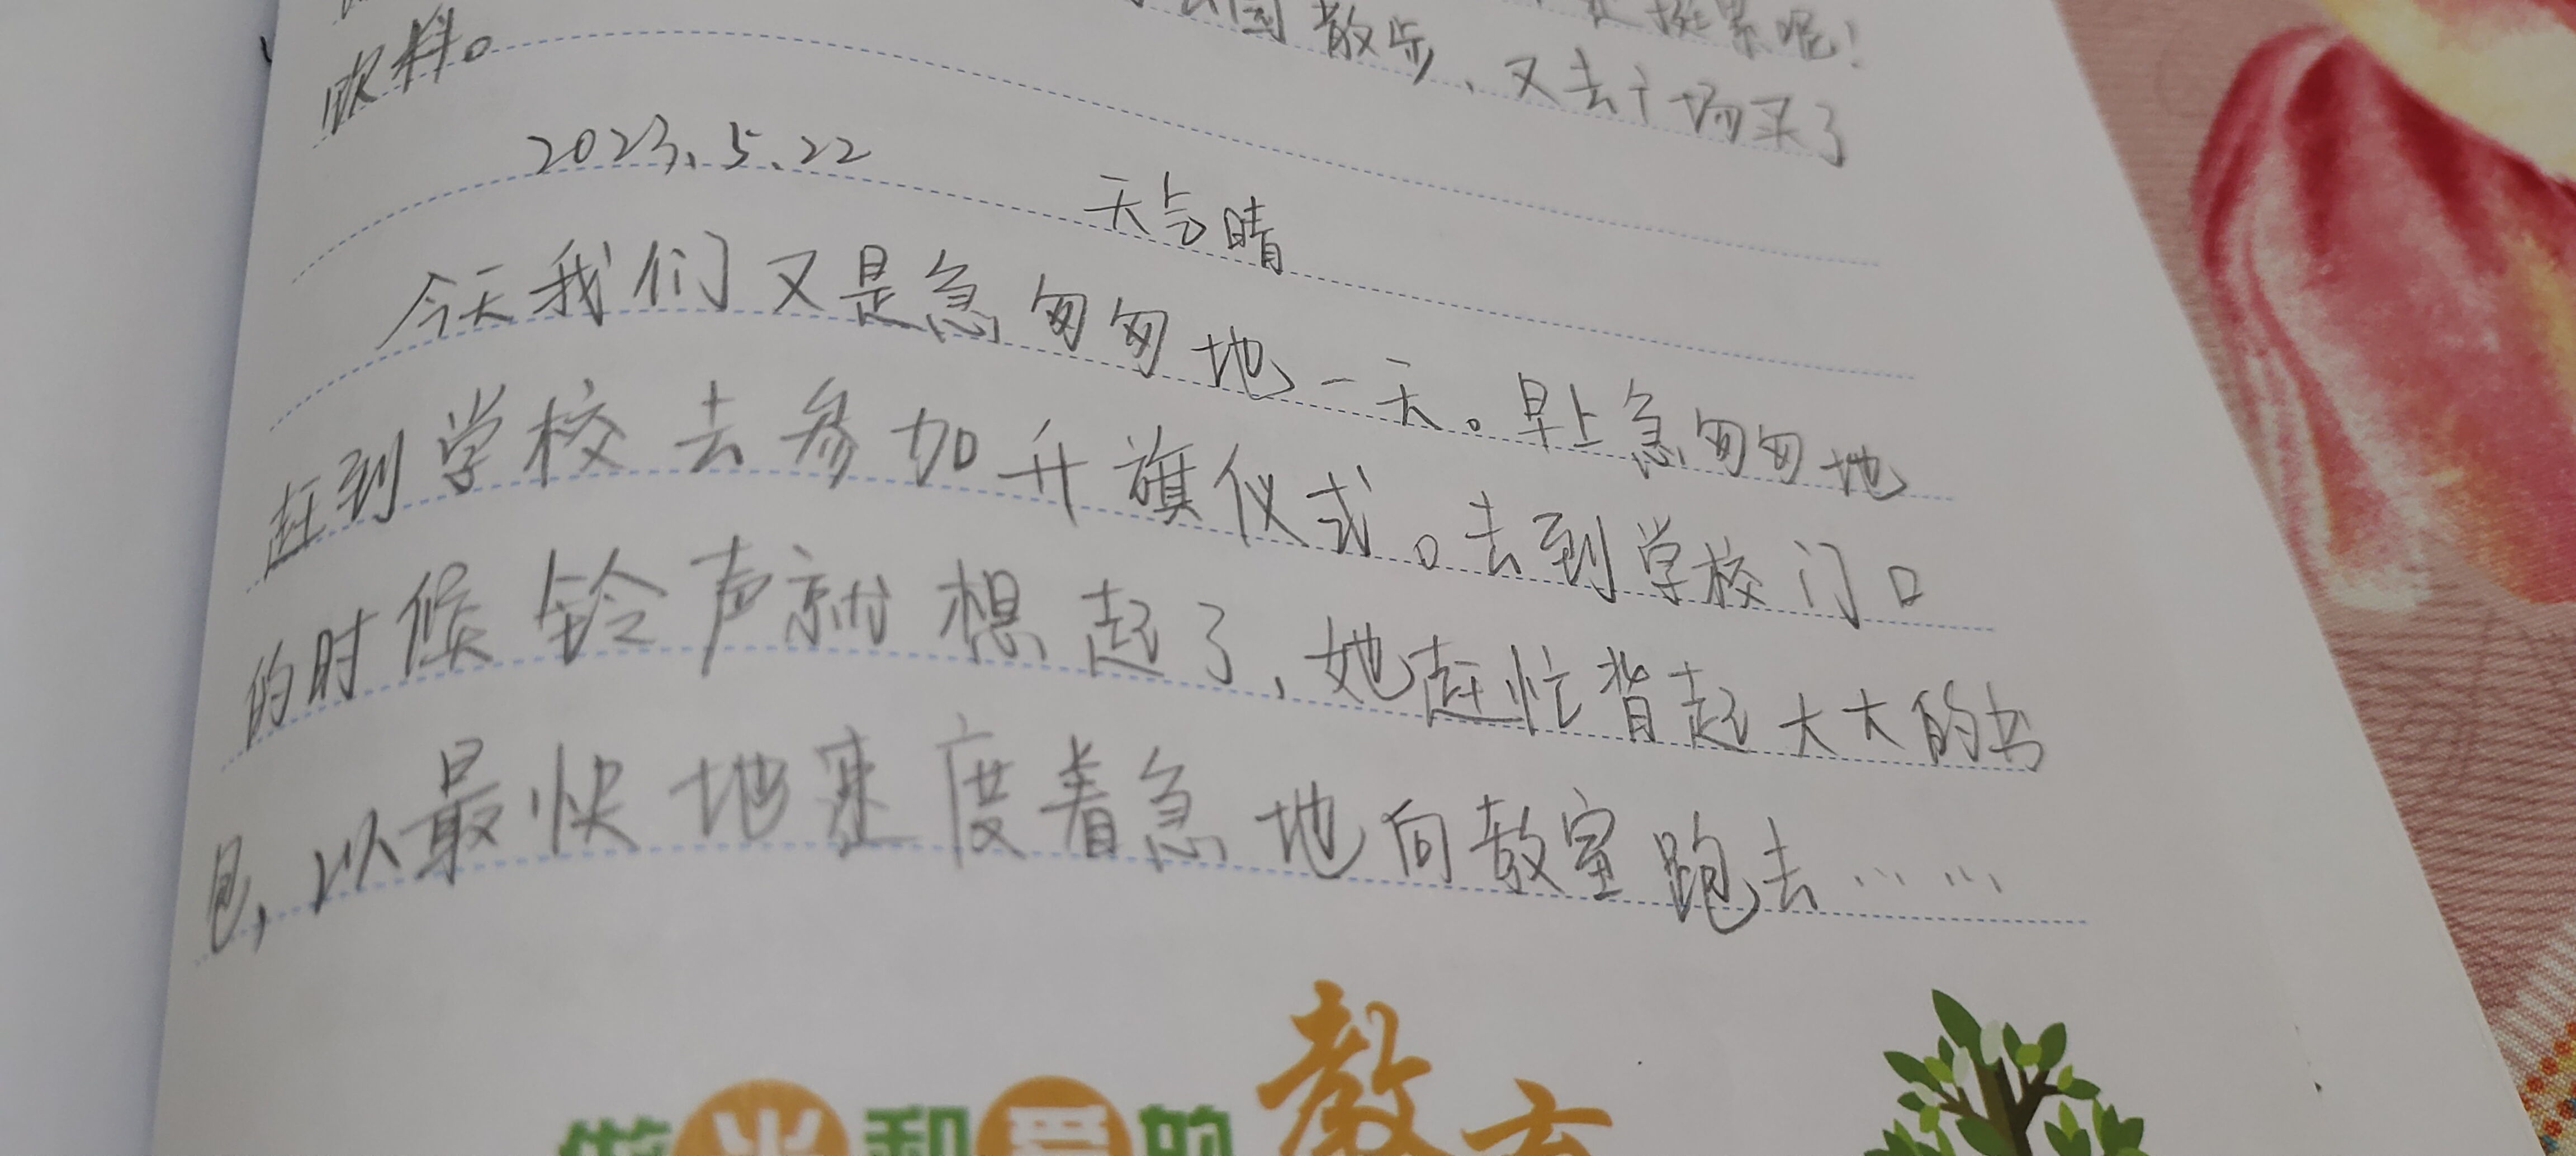 挺累呢！
园散步、又去市场买了
饮料。
2023.5.22
天气晴
今天我们又是急匆匆地一天。早上急匆匆地
赶到学校去参加升旗仪式。去到学校门口
的时候铃声就想起了，她赶忙背起大大的书
包，以最快地速度着急地向教室跑去……
做光和爱的教育